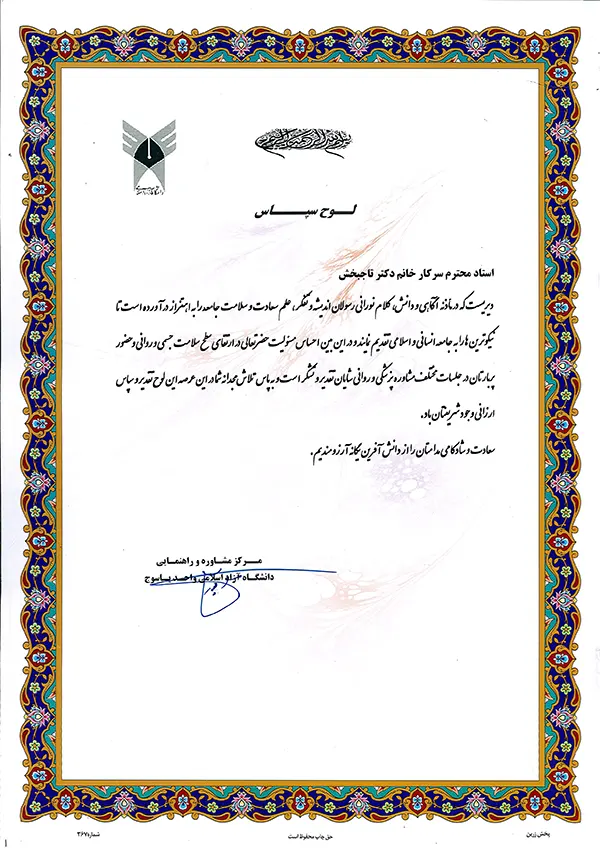 بسم الله الرحمن الرحیم
لوح سپاس
استاد محترم سرکار خانم دکتر تاجبخش
دیریست که در مائده آگاهی و دانش، کلام نورانی رسولان اندیشه و تفکر، علم سعادت و سلامت جامعه را به اهتزاز درآورده است تا
نیکوترین ها را به جامعه انسانی و اسلامی تقدیم نمایند و در این بین احساس مسئولیت حضرتعالی در ارتقای سطح سلامت جسمی و روانی و حضور
پربارتان در جلسات مختلف مشاوره پزشکی و روانی شایان تقدیر و تشکر است و به پاس تلاش مجدانه شما در این عرصه این لوح تقدیر و سپاس
ارزانی وجود شریفتان باد.
سعادت و شادکامی مدامتان را از دانش آفرین یگانه آرزومندیم.
مرکز مشاوره و راهنمایی
دانشگاه آزاد اسلامی واحد یاسوج
پخش زرین
حق چاپ محفوظ است
شماره ۳۶۷